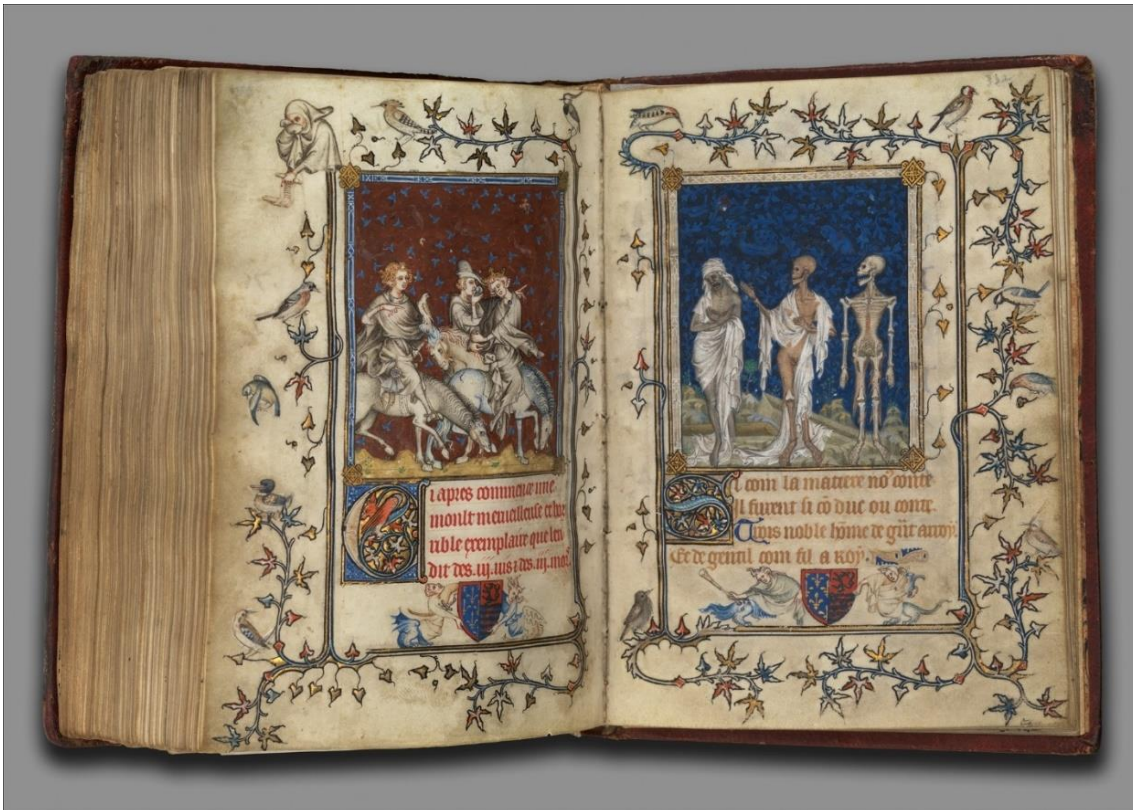 i apres commence une
moult merueilleuse et hor
rible exemplaire que len
dit des .iij. uis ⁊ des .iij. mors
i com la matiere no⁹ conte
Il furent si cō duc ou conte.
Trois noble hōme de
Et de gentil com fil a Roy.